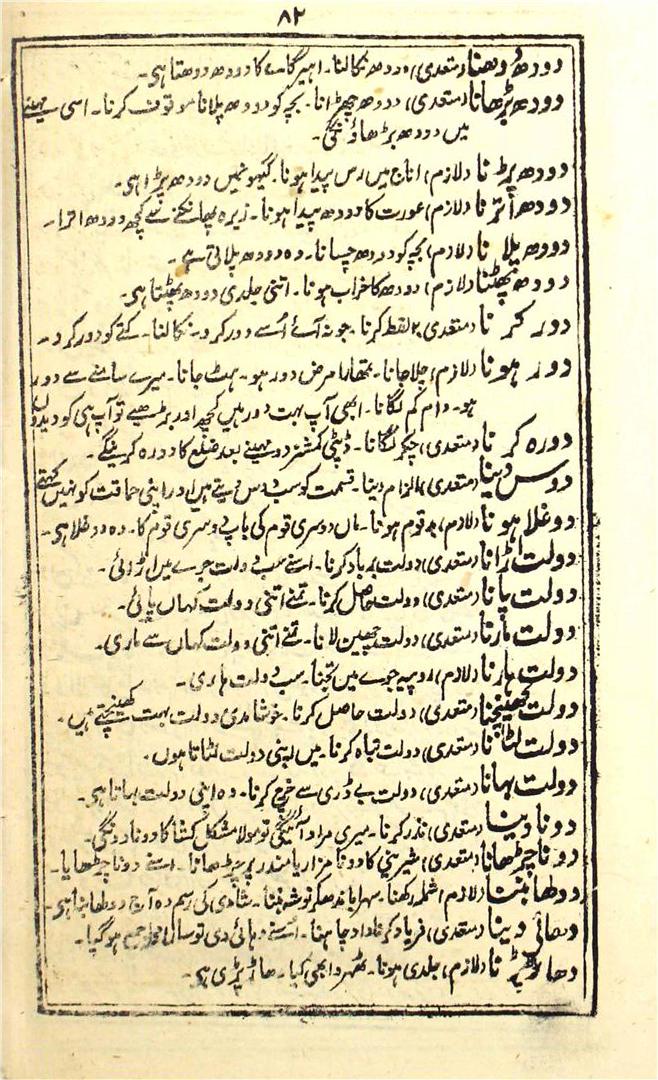 ۸۲
دودھ دوھنا (متعدی) دودھ نکالنا۔ اہیر گائے کا دودھ دوھتا ہی۔
دودھ بڑھانا (متعدی) دودھ چھڑانا۔ بچہ کو دودھ پلانا موقوف کرنا۔ اسی مہینے
میں دودھ بڑھاؤنگی۔
دودھ پڑنا (لازم) اناج میں رس پیدا ہونا۔ گیہوں میں دودھ پڑا ہی۔
دودھ اُترنا (لازم) عورت کا دودھ پیدا ہونا۔ زیرہ پھانکنے سے کچھ دودھ اترا۔
دودھ پلانا (لازم) بچہ کو دودھ چسانا۔ وہ دودھ پلاتی ہے۔
دودھ پھٹنا (لازم) دودھ کا خراب ہونا۔ اتنی جلدی دودھ پھٹتا ہی۔
دور کرنا (متعدی) لقط کرنا۔ جو نہ آئے اُسے دور کرو۔ نکالنا۔ کتے کو دور کرو۔
دور ہونا (لازم) چلا جانا۔ تمھارا مرض دور ہو۔ ہٹ جانا۔ میرے سامنے سے دور
ہو۔ دام کم لگانا۔ ابھی آپ بہت دور ہیں کچھ اور بڑھیے تو آپ ہی کو دیدوں
دورہ کرنا (متعدی) چکر لگانا۔ ڈپٹی کمشنر دو مہینے بعد ضلع کا دورہ کرینگے۔
دوس دینا (متعدی) الزام دینا۔ قسمت کو سب دوس دیتے ہیں اور اپنی حماقت کو نہیں کہتے
دوغلا ہونا (لازم) بد قوم ہونا۔ ماں دوسری قوم کی باپ دوسری قوم کا۔ وہ دوغلا ہی۔
دولت اُڑانا (متعدی) دولت برباد کرنا۔ اسنے سب دولت جوے میں اُڑوائی۔
دولت پانا (متعدی) دولت حاصل کرنا۔ تمنے اتنی دولت کہاں پائی۔
دولت مارنا (متعدی) دولت چھین لانا۔ تمنے اتنی دولت کہاں سے ماری۔
دولت ہارنا (لازم) روپیہ جوے میں تجنا۔ سب دولت ہاری۔
دولت کھینچنا (متعدی) دولت حاصل کرنا۔ خوشامدی دولت بہت کھینچتے ہیں۔
دولت لٹانا (متعدی) دولت تباہ کرنا۔ میں اپنی دولت لٹاتا ہوں۔
دولت بہانا (متعدی) دولت بے دردی سے خرچ کرنا۔ وہ اپنی دولت بہاتا ہی۔
دونا دینا (متعدی) نذر کرنا۔ میری مراد آئیگی تو مولا مشکل کشا کا دونا دونگی۔
دونا چڑھانا (متعدی) شیرینی کا دونا مزار یا مندر پر چڑھانا۔ اسنے دونا چڑھایا۔
دوطھا بننا (لازم) شملہ رکھنا۔ سہرا باندھکر نوشہ بننا۔ شادی کی رسم وہ آج دوطھا بنا ہی۔
دھائی دینا (متعدی) فریاد کرنا داد چاہنا۔ اُسنے دہائی دی تو سارا محلہ جمع ہو گیا۔
دھاڑ پڑنا (لازم) جلدی ہونا۔ ٹھہرو ابھی کیا۔ دھاڑ پڑی ہی۔